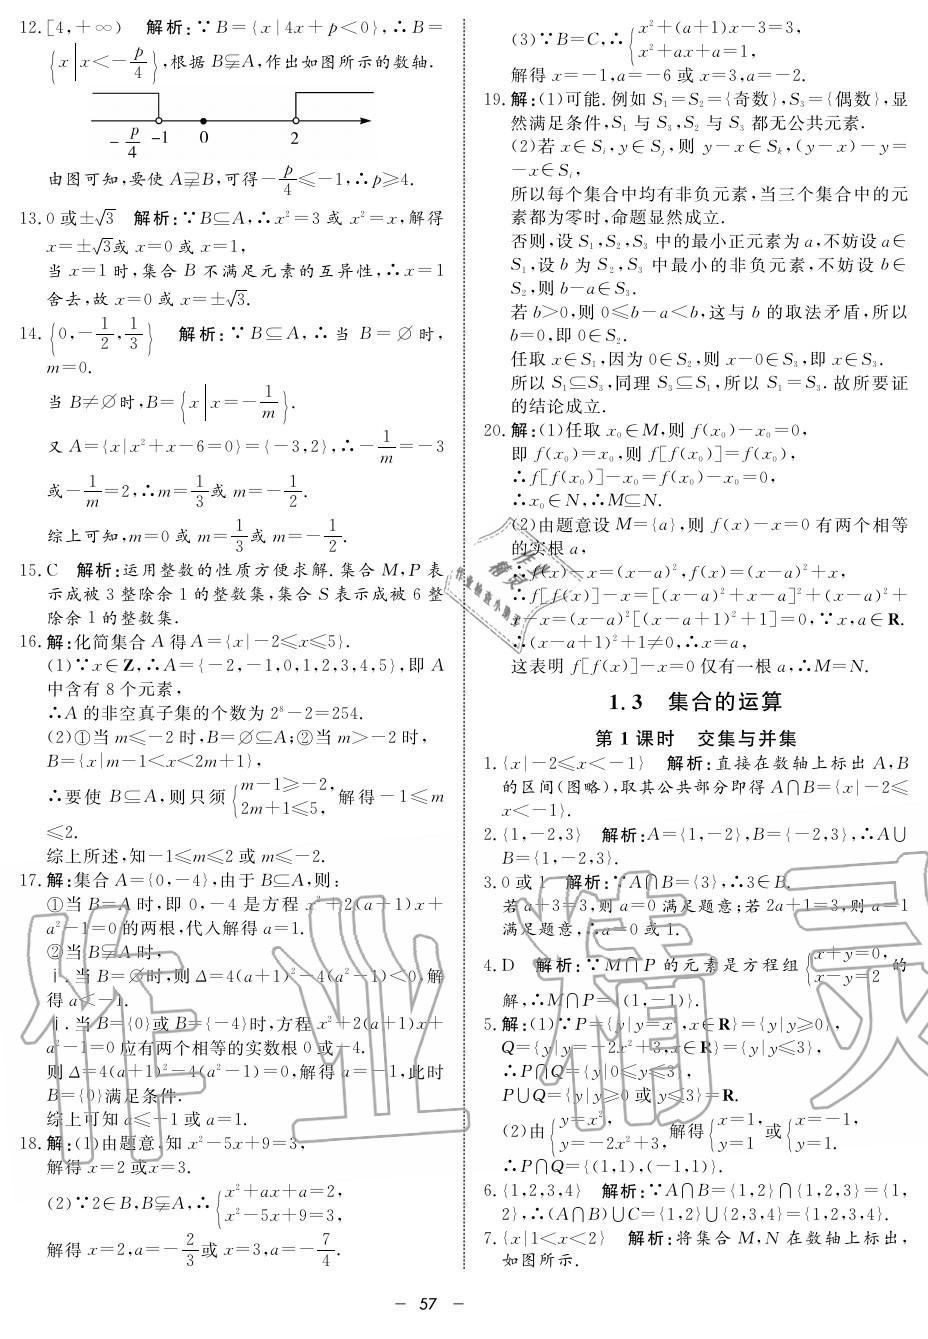 12.[4,+∞)　解析:∵B={x|4x+p<0},∴B=
{x|x<-p/4},根据B⫋A,作出如图所示的数轴.
-p/4 -1 0 2
由图可知,要使A⫌B,可得-p/4≤-1,∴p≥4.
13.0或±√3　解析:∵B⊆A,∴x²=3或x²=x,解得
x=±√3或x=0或x=1,
当x=1时,集合B不满足元素的互异性,∴x=1
舍去,故x=0或x=±√3.
14.{0,-1/2,1/3}　解析:∵B⊆A,∴当B=∅时,
m=0.
当B≠∅时,B={x|x=-1/m}.
又A={x|x²+x-6=0}={-3,2},∴-1/m=-3
或-1/m=2,∴m=1/3或m=-1/2.
综上可知,m=0或m=1/3或m=-1/2.
15.C　解析:运用整数的性质方便求解.集合M,P表
示成被3整除余1的整数集,集合S表示成被6整
除余1的整数集.
16.解:化简集合A得A={x|-2≤x≤5}.
(1)∵x∈Z,∴A={-2,-1,0,1,2,3,4,5},即A
中含有8个元素,
∴A的非空真子集的个数为2⁸-2=254.
(2)①当m≤-2时,B=∅⊆A;②当m>-2时,
B={x|m-1<x<2m+1},
∴要使B⊆A,则只须{m-1≥-2, 2m+1≤5,解得-1≤m
≤2.
综上所述,知-1≤m≤2或m≤-2.
17.解:集合A={0,-4},由于B⊆A,则:
①当B=A时,即0,-4是方程x²+2(a+1)x+
a²-1=0的两根,代入解得a=1.
②当B⫋A时,
ⅰ.当B=∅时,则Δ=4(a+1)²-4(a²-1)<0,解
得a<-1.
ⅱ.当B={0}或B={-4}时,方程x²+2(a+1)x+
a²-1=0应有两个相等的实数根0或-4.
则Δ=4(a+1)²-4(a²-1)=0,解得a=-1,此时
B={0}满足条件.
综上可知a≤-1或a=1.
18.解:(1)由题意,知x²-5x+9=3,
解得x=2或x=3.
(2)∵2∈B,B⫋A,∴{x²+ax+a=2, x²-5x+9=3,
解得x=2,a=-2/3或x=3,a=-7/4.
(3)∵B=C,∴{x²+(a+1)x-3=3, x²+ax+a=1,
解得x=-1,a=-6或x=3,a=-2.
19.解:(1)可能.例如S₁=S₂={奇数},S₃={偶数},显
然满足条件,S₁与S₃,S₂与S₃都无公共元素.
(2)若x∈Sᵢ,y∈Sⱼ,则y-x∈Sₖ,(y-x)-y=
-x∈Sᵢ,
所以每个集合中均有非负元素,当三个集合中的元
素都为零时,命题显然成立.
否则,设S₁,S₂,S₃中的最小正元素为a,不妨设a∈
S₁,设b为S₂,S₃中最小的非负元素,不妨设b∈
S₂,则b-a∈S₃.
若b>0,则0≤b-a<b,这与b的取法矛盾,所以
b=0,即0∈S₂.
任取x∈S₁,因为0∈S₂,则x-0∈S₃,即x∈S₃.
所以S₁⊆S₃,同理S₃⊆S₁,所以S₁=S₃.故所要证
的结论成立.
20.解:(1)任取x₀∈M,则f(x₀)-x₀=0,
即f(x₀)=x₀,则f[f(x₀)]=f(x₀),
∴f[f(x₀)]-x₀=f(x₀)-x₀=0,
∴x₀∈N,∴M⊆N.
(2)由题意设M={a},则f(x)-x=0有两个相等
的实根a,
∴f(x)-x=(x-a)²,f(x)=(x-a)²+x,
∴f[f(x)]-x=[(x-a)²+x-a]²+(x-a)²+
x-x=(x-a)²[(x-a+1)²+1]=0,∵x,a∈R.
∴(x-a+1)²+1≠0,∴x=a,
这表明f[f(x)]-x=0仅有一根a,∴M=N.
1.3　集合的运算
第1课时　交集与并集
1.{x|-2≤x<-1}　解析:直接在数轴上标出A,B
的区间(图略),取其公共部分即得A∩B={x|-2≤
x<-1}.
2.{1,-2,3}　解析:A={1,-2},B={-2,3},∴A∪
B={1,-2,3}.
3.0或1　解析:∵A∩B={3},∴3∈B.
若a+3=3,则a=0满足题意;若2a+1=3,则a=1
满足题意,∴a=0或1.
4.D　解析:∵M∩P的元素是方程组{x+y=0, x-y=2的
解,∴M∩P={(1,-1)}.
5.解:(1)∵P={y|y=x²,x∈R}={y|y≥0},
Q={y|y=-2x²+3,x∈R}={y|y≤3},
∴P∩Q={y|0≤y≤3},
P∪Q={y|y≥0或y≤3}=R.
(2)由{y=x², y=-2x²+3,解得{x=1, y=1或{x=-1, y=1.
∴P∩Q={(1,1),(-1,1)}.
6.{1,2,3,4}　解析:∵A∩B={1,2}∩{1,2,3}={1,
2},∴(A∩B)∪C={1,2}∪{2,3,4}={1,2,3,4}.
7.{x|1<x<2}　解析:将集合M,N在数轴上标出,
如图所示.
— 57 —
作业精灵